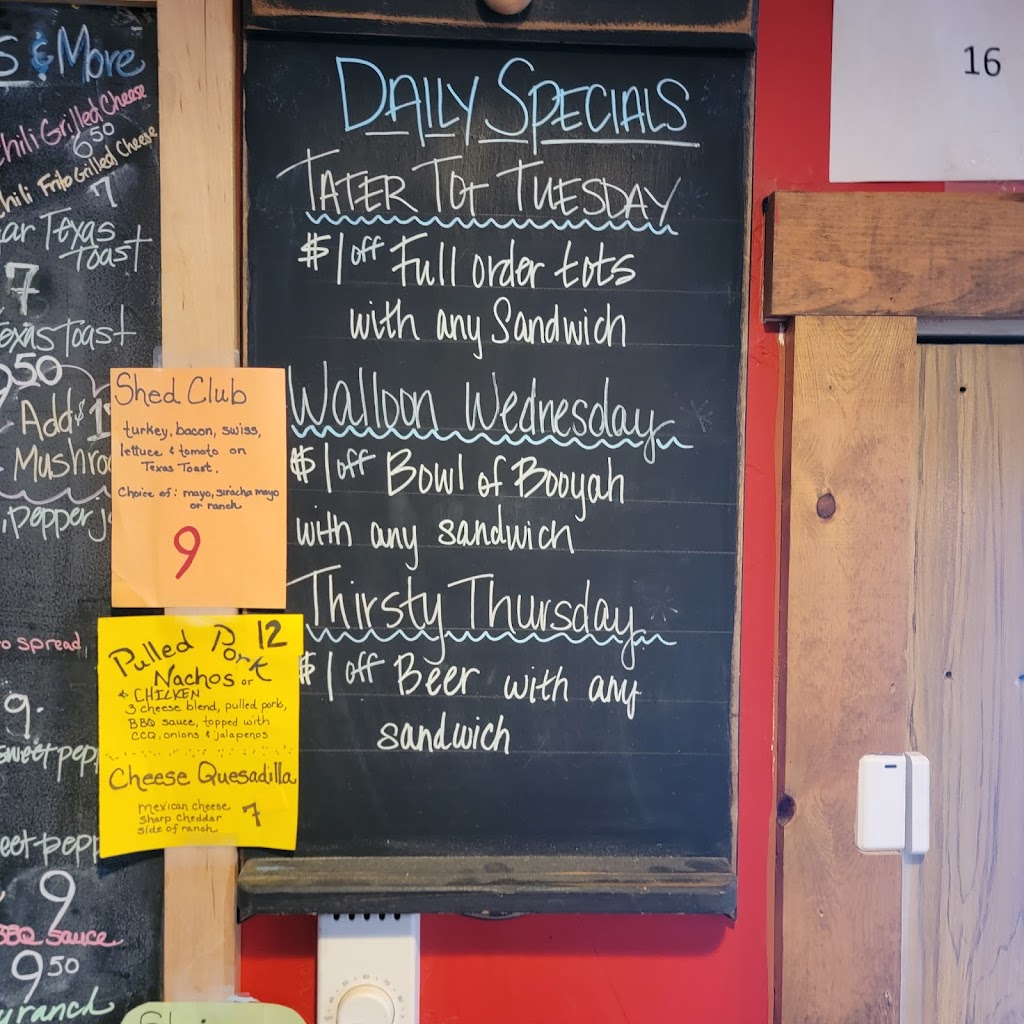 & More
Chili Grilled Cheese
6.50
Chili Frito Grilled Cheese
7
Texas
Toast
7
Texas Toast
9.50
Add $1
pepper
spread
9.
sweet pep
9
BBQ Sauce
9.50
ranch
Shed Club
turkey, bacon, swiss,
lettuce & tomato on
Texas Toast.
Choice of: mayo, siracha mayo
or ranch
9
Pulled Pork 12
Nachos or
& CHICKEN
3 cheese blend, pulled pork,
BBQ sauce, topped with
CCQ, onions & jalapenos
Cheese Quesadilla
mexican cheese
sharp cheddar
side of ranch
7
DAILY SPECIALS
TATER TOT TUESDAY
$1 off Full order tots
with any Sandwich
Walloon Wednesday
$1 off Bowl of Booyah
with any sandwich
Thirsty Thursday
$1 off Beer with any
sandwich
16